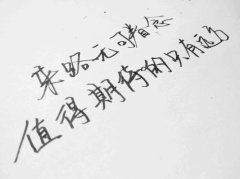 来路无可眷念
值得期待的只有远方